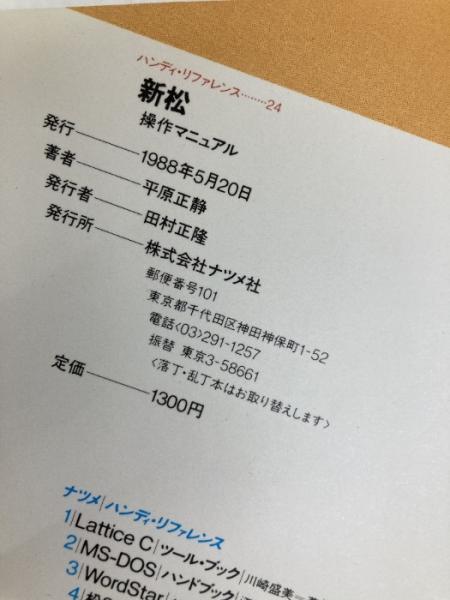 ハンディ・リファレンス………24
新松
操作マニュアル
発行――1988年5月20日
著者――平原正静
発行者――田村正隆
発行所――株式会社ナツメ社
郵便番号101
東京都千代田区神田神保町1-52
電話〈03〉291-1257
振替 東京3-58661
〈落丁・乱丁本はお取り替えします〉
定価――1300円
ナツメ/ハンディ・リファレンス
1/Lattice C/ツール・ブック/川崎盛美
2/MS-DOS/ハンドブック/
3/WordStar/
4/松